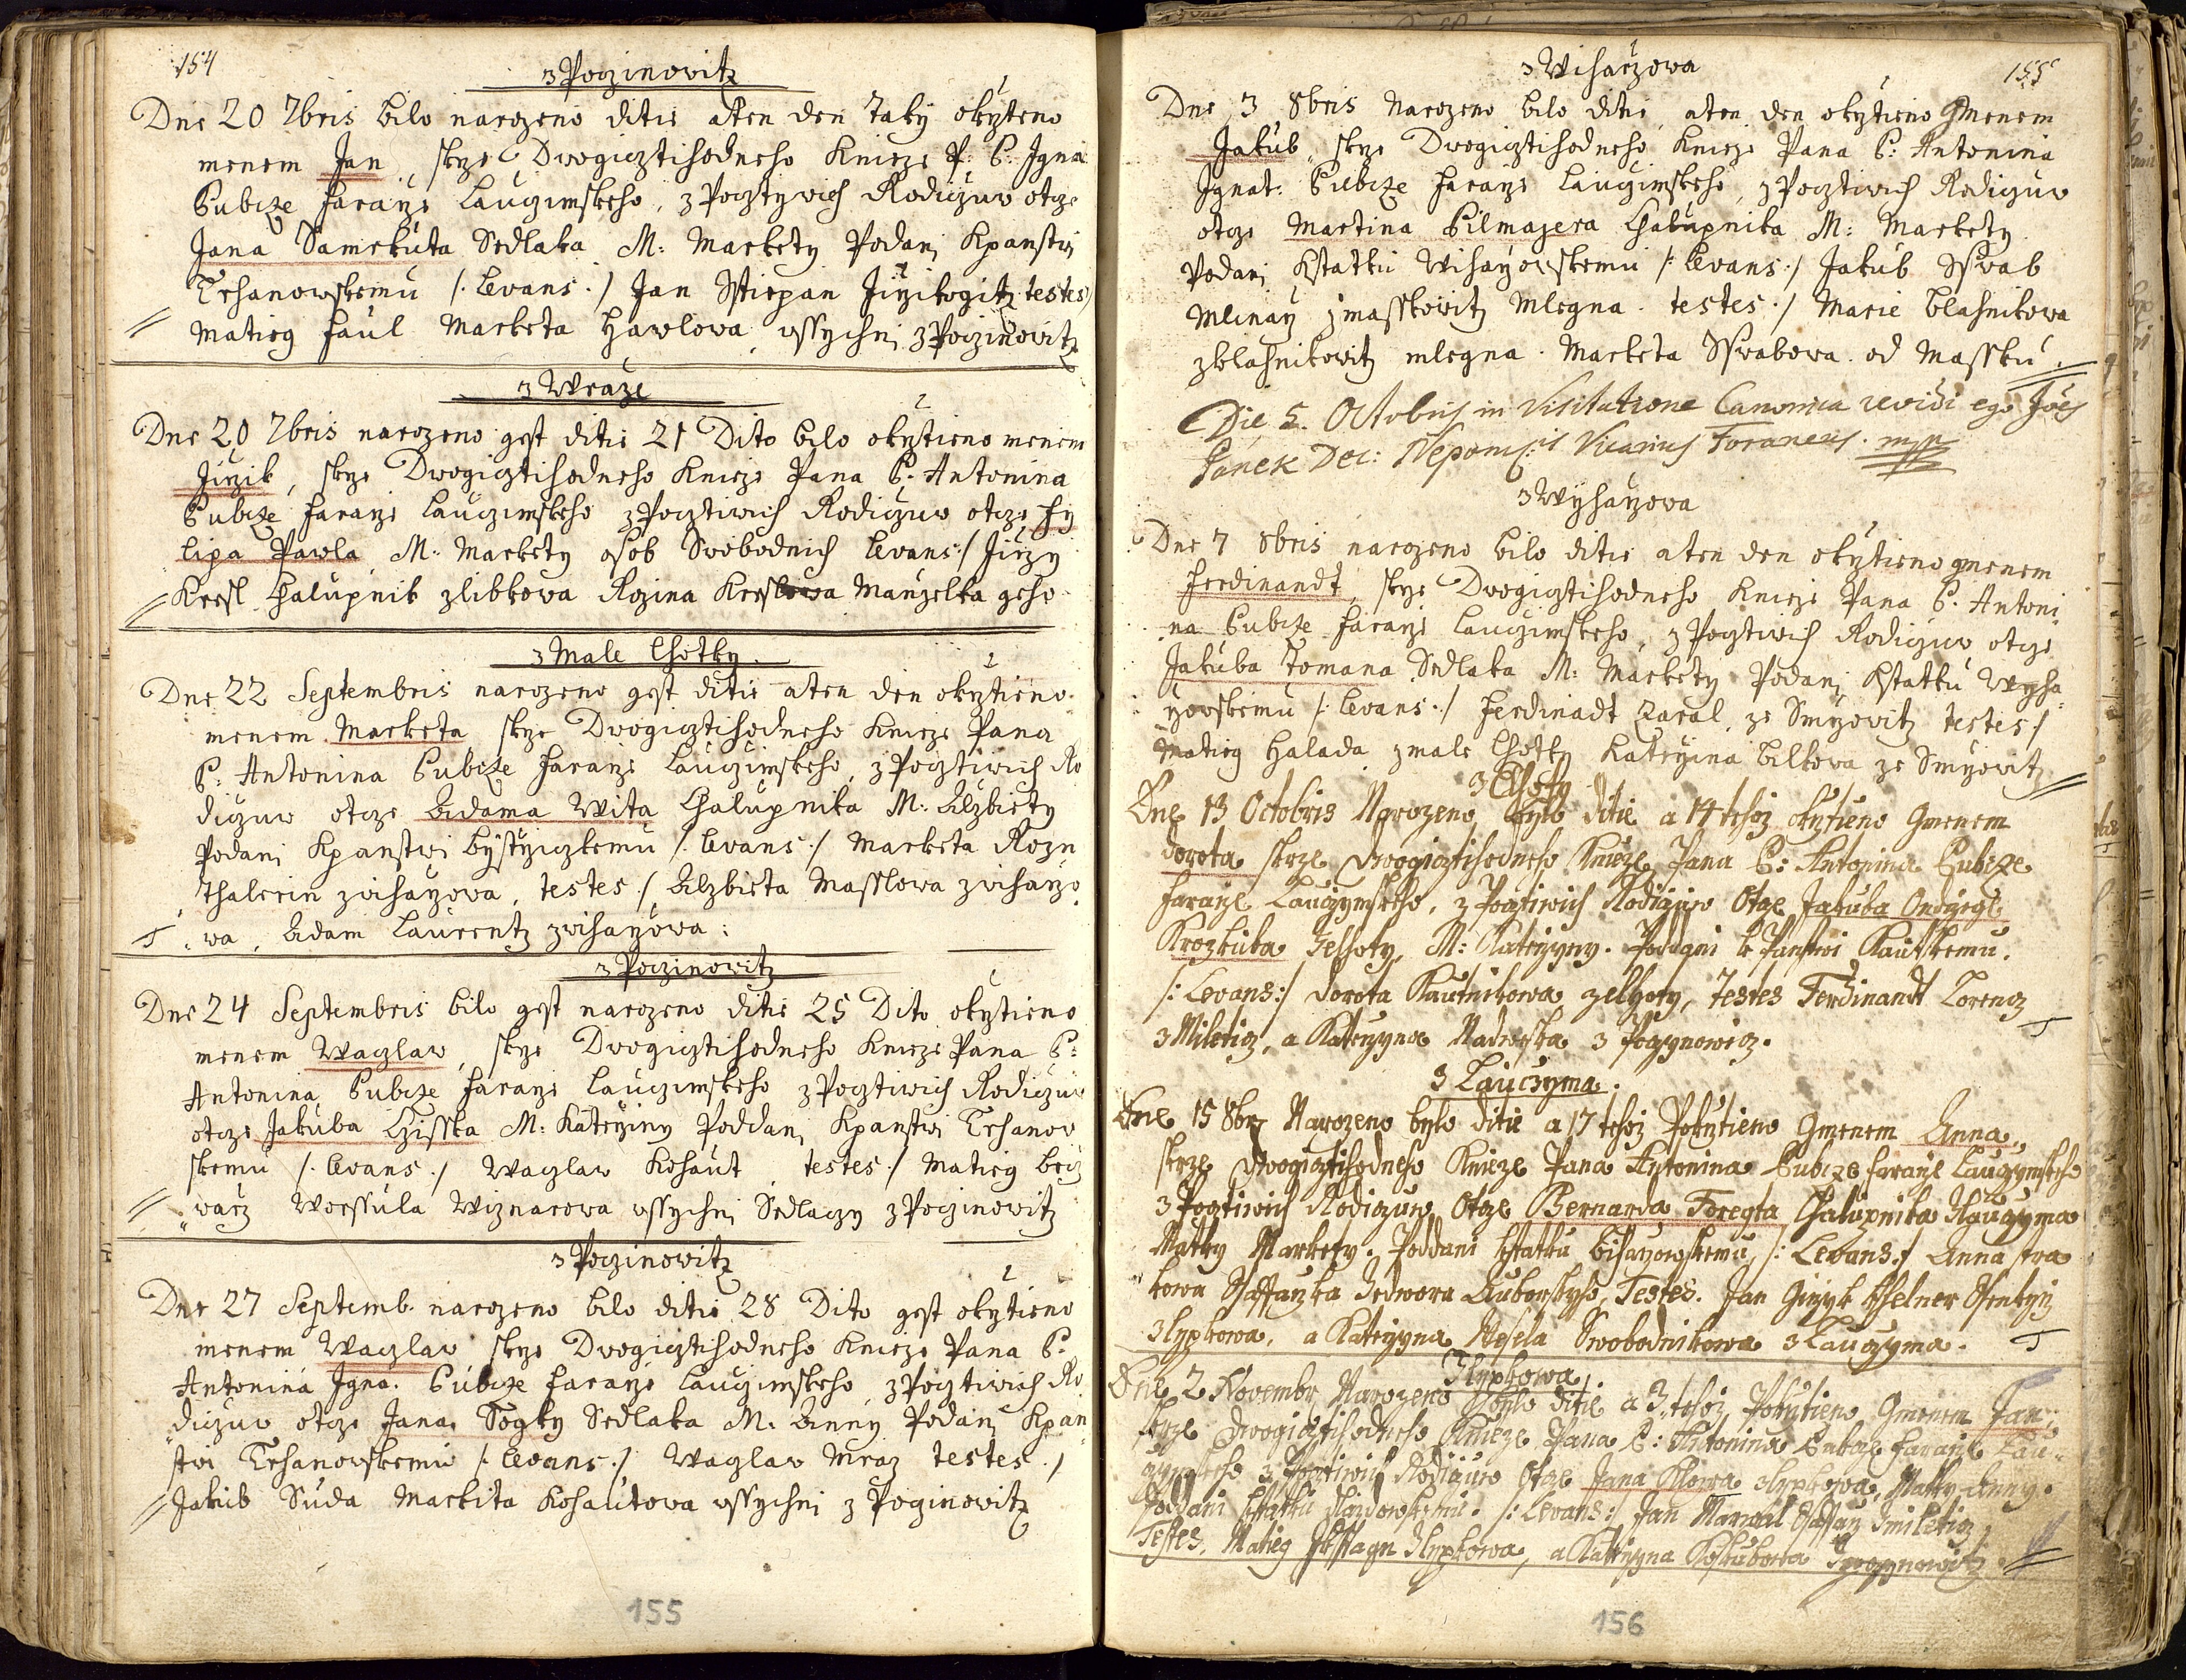 154
z Poczinowitz
Dne 20 7bris bilo narozeno ditie aten den taky okrzteno
menem Jan, skrze Dwogicztihodneho Knieze P. C. Igna
Cubicze Faraze Lauczimskeho, z Pocztywich Rodiczuw otcze
Jana Samekuta Sedlaka M: Markety Podani Kpanstwi
Trhanowskemu /: Levans :/ Jan Sstiepan Jirzikogitz testes
Matieg Faul Marketa Hawlowa, wssychni z Poczinowitz
z Wraze
Dne 20 7bris narozeno gest ditie 21 Dito bilo okrztieno menem
Jirzik, skrze Dwogicztihodneho Knieze Pana C. Antonina
Cubicze Faraze Lauczimskeho z Pocztiwich Rodiczuw otcze Fy
lipa Pawla M: Markety osob Swobodnich Levans :/ Jirzy
Kresl Chalupnik zlibkowa Rozina Kreslowa Manzelka geho
z Male Lhotky
Dne 22 Septembris narozeno gest ditie aten den okrztieno
menem Marketa skrze Dwogicztihodneho Knieze Pana
C: Antonina Cubicze Faraze Lauczimskeho, z Pocztiwich Ro
diczuw otcze Adama Wita Chalupnika M: Alzbiety
Podani Kpanstwi bystrziczkemu /: Levans :/ Marketa Rozn
thalerin zwiharzowa, testes :/ Alzbieta Masslowa zwiharzo
wa, Adam Laurentz zwiharzowa:
z Poczinowitz
Dne 24 Septembris bilo gest narozeno ditie 25 Dito okrztieno
menem Waczlaw, skrze Dwogicztihodneho Knieze Pana C:
Antonina Cubicze Faraze Lauczimskeho z Pocztiwich Rodiczuw
otcze Jakuba Czisska M: Katerziny Poddani Kpanstwi Trhanow
skemu /: Levans :/ Waczlaw Kohaut testes :/ Matieg brez
wacz Worssula Wiznarowa wssychni Sedlaczy z Poczinowitz
z Poczinowitz
Dne 27 Septemb. narozeno bilo ditie 28 Dito gest okrztieno
menem Waczlaw skrze Dwogicztihodneho Knieze Pana C:
Antonina Igna. Cubicze Faraze Lauczimskeho, z Pocztiwich Ro
diczuw otcze Jana Sogky Sedlaka M: Anny Podani Kpan
stwi Trhanowskemu /: Levans :/ Waczlaw Mraz testes :/
Jakub Suda Marketa Kohautowa wssychni z Poczinowitz
155
z Wiharzowa
155
Dne 3 8bris Narozeno bilo ditie, aten den okrztieno Gmenem
Jakub, skrze Dwogicztihodneho Knieze Pana C: Antonina
Ignat: Cubicze Faraze Lauczimskeho, z Pocztiwich Rodiczuw
otcze Martina Bilmajera Chalupnika M: Markety
Podani Kstatku Wiharzowskemu /: Levans :/ Jakub Sswab
Mlinarz z Masskowitz Mlegna. testes :/ Marie blahnikowa
zblahnikowitz mlegna. Marketa Sswabowa od Massku.
Die 5. Octobris in Visitatione Canonica revidi ego Joës
Janek Dec: Nepomc: Vicarius Foraneus. mpp
z Wyharzowa
Dne 7 8bris narozeno bilo ditie aten den okrztieno gmenem
Ferdinandt, skrze Dwogicztihodneho Knieze Pana C. Antoni
na Cubicze Faraze Lauczimskeho, z Pocztiwich Rodiczuw otcze
Jakuba Tomana Sedlaka M: Markety Podani Kstatku Wyha
rzowskemu /: Levans :/ Ferdinadt Karal, ze Smrzowitz testes :/
Matieg Halada z male Lhotky Katerzina bilkowa ze Smrzowitz
z Lhoty
Dne 13 Octobris Narozeno bylo ditie a 14 tehoz okrztieno Gmenem
Dorota skrze Dwogicztihodneho Knieze Pana C: Antonina Cubicze
Faraze Lauczymskeho, z Pocztiwich Rodiczuw Otcze Jakuba Ondrzege
Krczkuba Zelhoty, M: Katerzyny. Poddani k Panstwi Kautskemu.
/: Levans :/ Dorota Kautnikowa zelhoty, Testes Ferdinandt Lorencz
z Mileticz, a Katerzyna Nadweska z Poczynowicz.
z Lauczyma.
Dne 15 8bris Narozeno bylo ditie a 17 tehoz Pokrztieno Gmenem Anna,
skrze Dwogicztihodneho Knieze Pana Antonina Cubicze Faraze Lauczymskeho
z Pocztiwich Rodiczuw Otcze Bernarda Foregta Chalupnika zlauczyma
Matky Markety. Poddani kstatku biharzowskemu /: Levans :/ Anna
kowa Ssaffarzka zedwora Auborskyho, Testes. Jan Girzyk
zlypkowa, a Katerzyna Wesela Swobodnikowa z Lauczyma.
zlypkowa
Dne 2 Novembr Narozeno bylo ditie a 3 tehoz Pokrztieno Gmenem Jan
skrze Dwogicztihodneho Knieze Pana C: Antonina Cubicze Faraze Lau-
czymskeho z Pocztiwich Rodiczuw Otcze Jana zlypkowa, Matky Anny.
Poddani kstatku /: Levans :/ Jan Marssal Ssaffarz zmileticz
Testes, Matieg zlypkowa, a Katerzyna zpoczynowitz
156